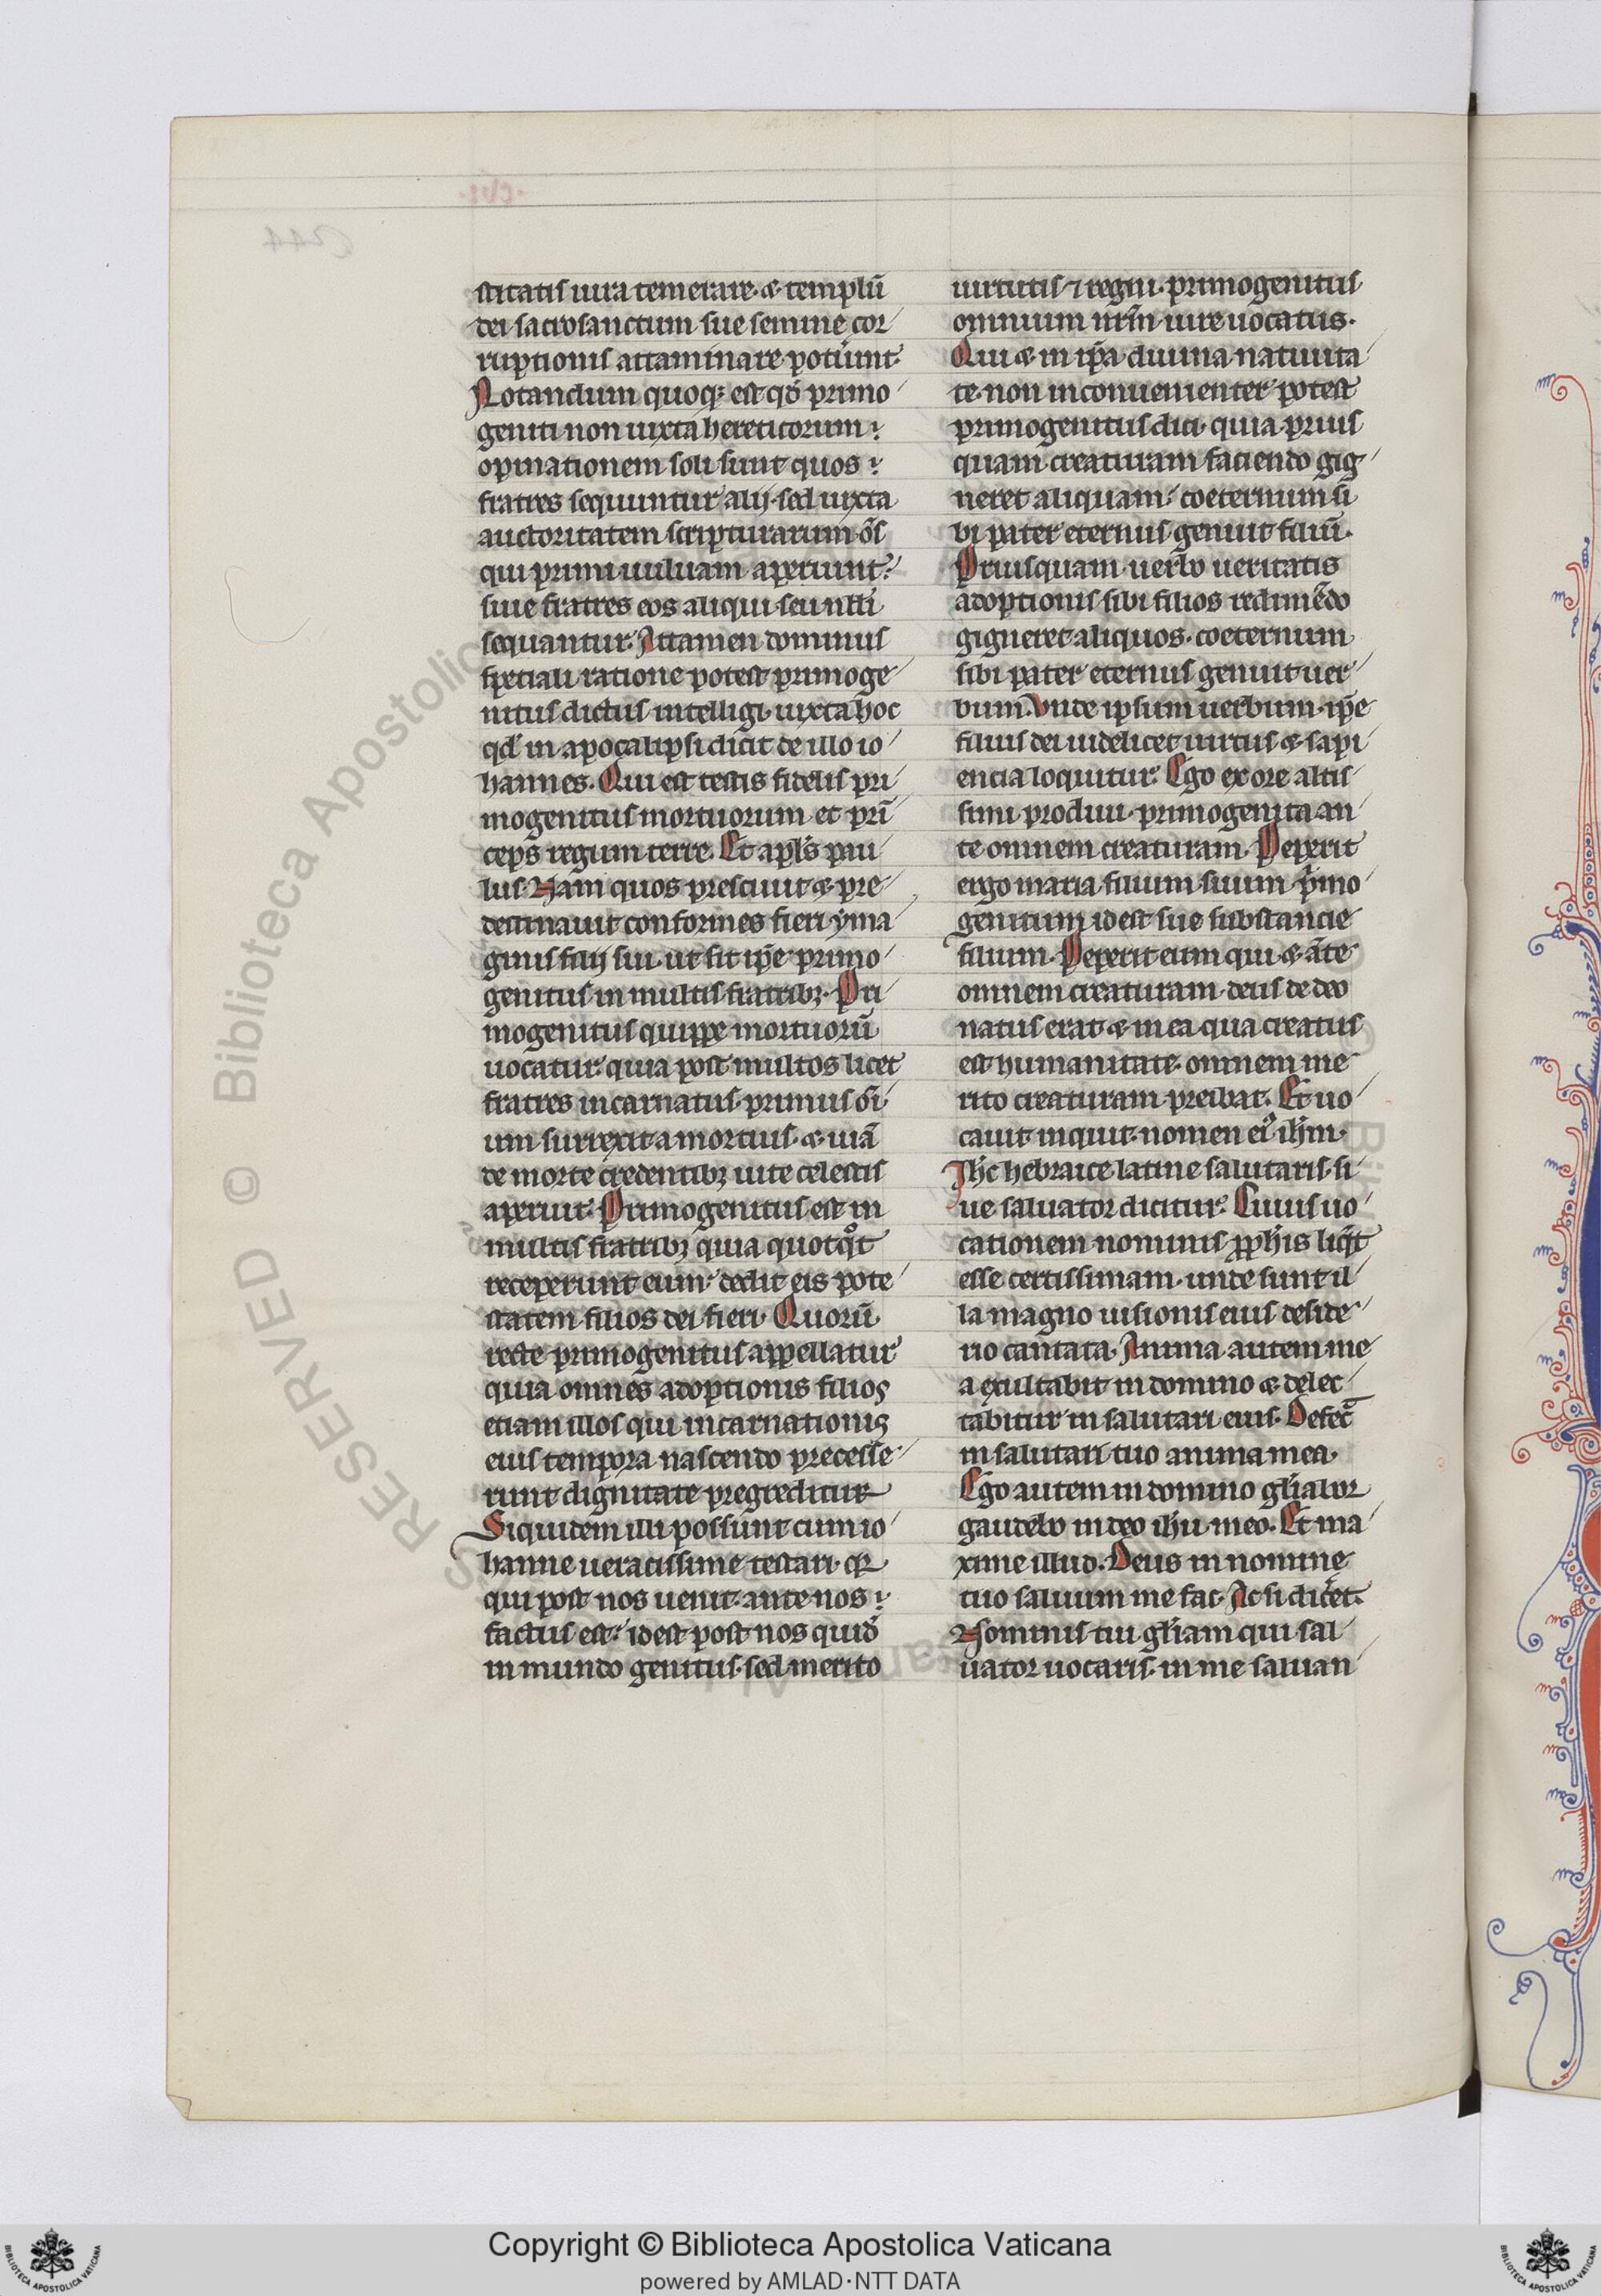 stitatis iura temerare· & templū
dei sacrosanctum sue semine cor
ruptionis attaminare potuͥnt·
Notandum quoq; est qđ primo
geniti non iuxta hereticorum
opinationem soli sunt quos
fratres sequuntur alij· sed iuxta
auctoritatem scripturarum om̄s
qui primi uuluam aperiunt·
siue fratres eos aliqui seu nulli
sequantur· Attamen dominus
speciali ratione potest primoge
nitus dictus intelligi· iuxta hoc
qđ in apocalipsi dicit de illo io
hannes· Qui est testis fidelis pri
mogenitus mortuorum et prī
ceps regum terre· Et apl's pau
lus· Nam quos presciuit & pre
destinauit conformes fieri yma
ginis filij sui· ut sit ip̄e primo
genitus in multis fratrib; · Pri
mogenitus quippe mortuorū
uocatur· quia post multos licet
fratres incarnatus· primus om̄i
um surrexit a mortuis· & uiā
de morte credentib; uite celestis
aperuit· Primogenitus est in
multis fratrib; quia quotqͦt
receperunt eum· dedit eis pote
statem filios dei fieri· Quorū
recte primogenitus appellatur
quia omnes adoptionis filios
etiam illos qui incarnationis
eius tempora nascendo precesse
runt dignitate pregreditur
Siquidem illi possunt cum io
hanne ueracissime testari· qꝛ
qui post nos uenit· ante nos
factus est· idest post nos quid̓
in mundo genitus· sed merito
uirtutis ⁊ regni· primogenitus
omnium nr̄m iure uocatus·
Qui & in ip̄a diuina natiuita
te· non inconuenienter potest
primogenitus dici· quia prius
quam creaturam faciendo gig
neret aliquam· coeternum si
bi pater eternus genuit filiū·
Priusquam uerbo ueritatis
adoptionis sibi filios redimēdo
gigneret aliquos· coeternum
sibi pater eternus genuit uer
bum· Unde ipsum uerbum· ip̄e
filius dei uidelicet uirtus & sapi
encia loquitur· Ego ex ore altis
simi prodiui· primogenita an
te omnem creaturam· Peperit
ergo maria filium suum pͥmo
genitum idest sue substancie
filium· Peperit eum qui & āte
omnem creaturam deus de deo
natus erat· & in ea qua creatus
est humanitate· omnem me
rito creaturam preibat· Et uo
cauit inquit· nomen ei᾿ ih̄m·
Ih̄c hebraice latine salutaris· si
ue saluator dicitur· Cuius uo
cationem nominis ꝓph̄is liqͣt
esse certissimam· unde sunt il
la magno uisionis eius deside
rio cantata· Anima autem me
a exultabit in domino & delec
tabitur in salutari eius· Defec̄
in salutari tuo anima mea·
Ego autem in domino gl'iabor
gaudebo in deo ih̄u meo· Et ma
xime illud· Deus in nomine
tuo saluum me fac· Ac si dic̓et·
Nominis tui gl'iam qui sal
uator uocaris· in me saluan
Copyright © Biblioteca Apostolica Vaticana
powered by AMLAD·NTT DATA